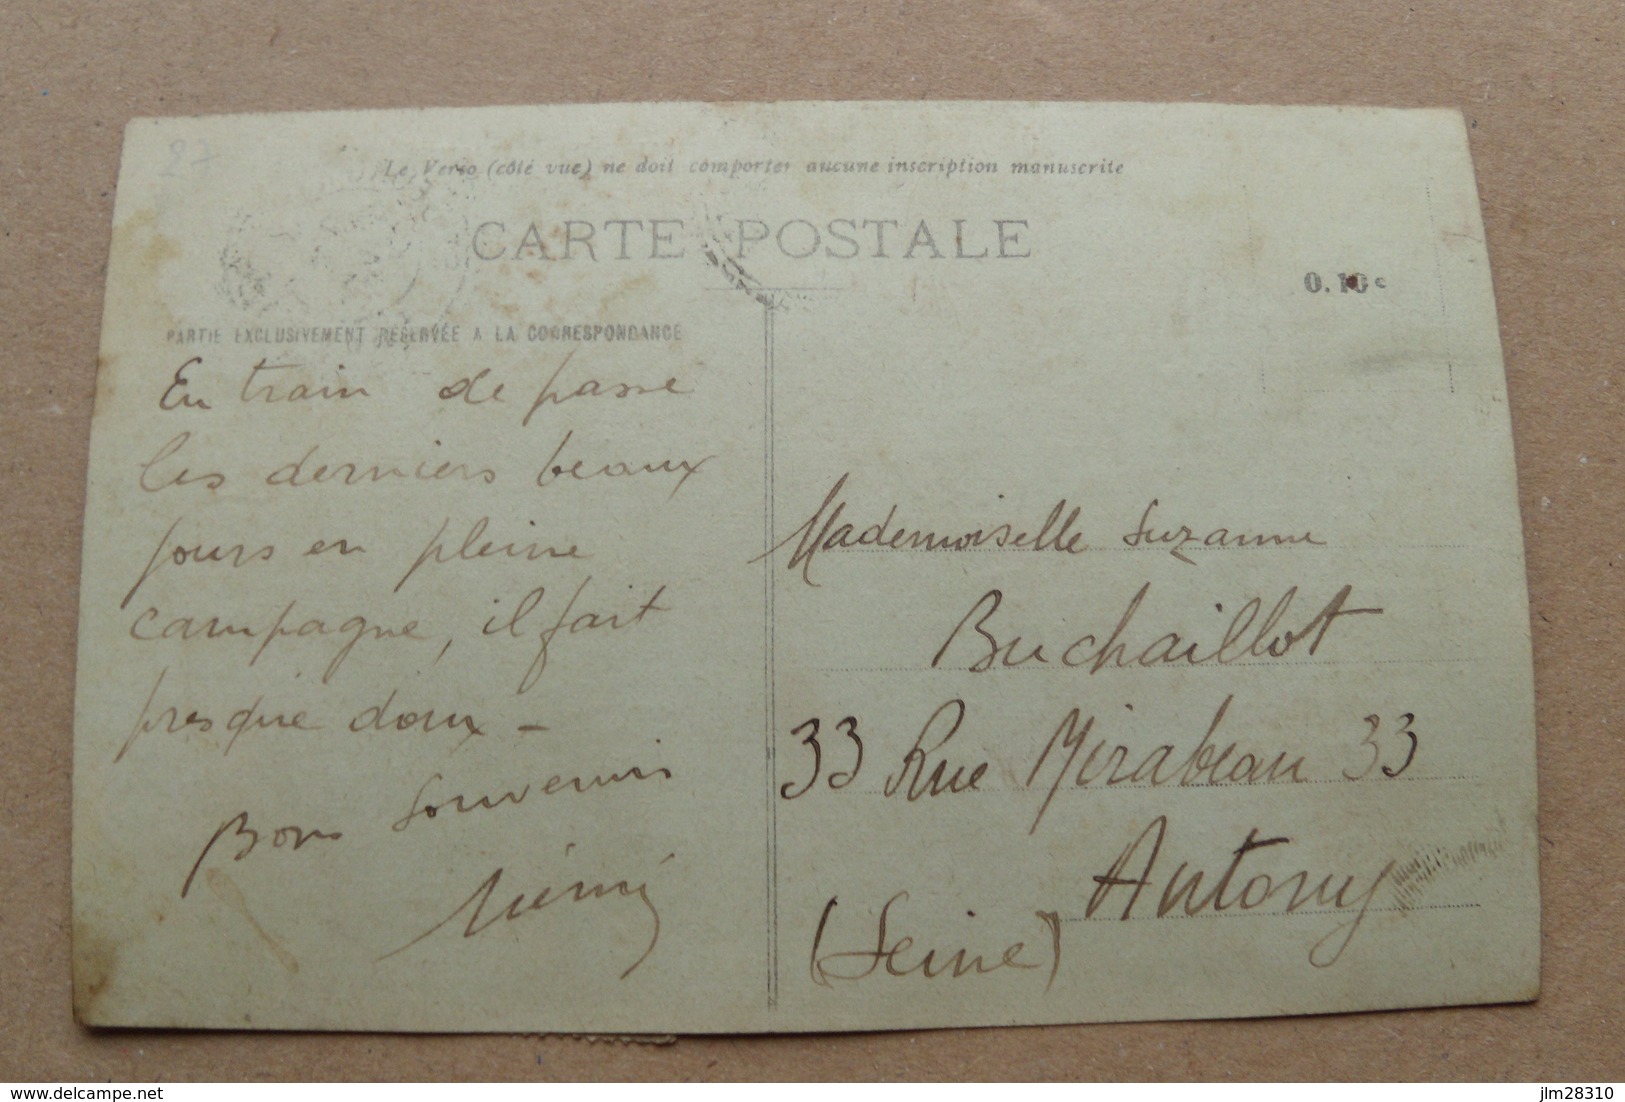 27
Le Verso (côté vue) ne doit comporter aucune inscription manuscrite
CARTE POSTALE
0.10 c
PARTIE EXCLUSIVEMENT RÉSERVÉE A LA CORRESPONDANCE
En train de passe
les derniers beaux
jours en pleine
campagne, il fait
presque doux -
Bons souvenirs
Mademoiselle Suzanne
Buchaillot
33 Rue Mirabeau 33
Antony
(Seine)
delcampe.net
jlm28310